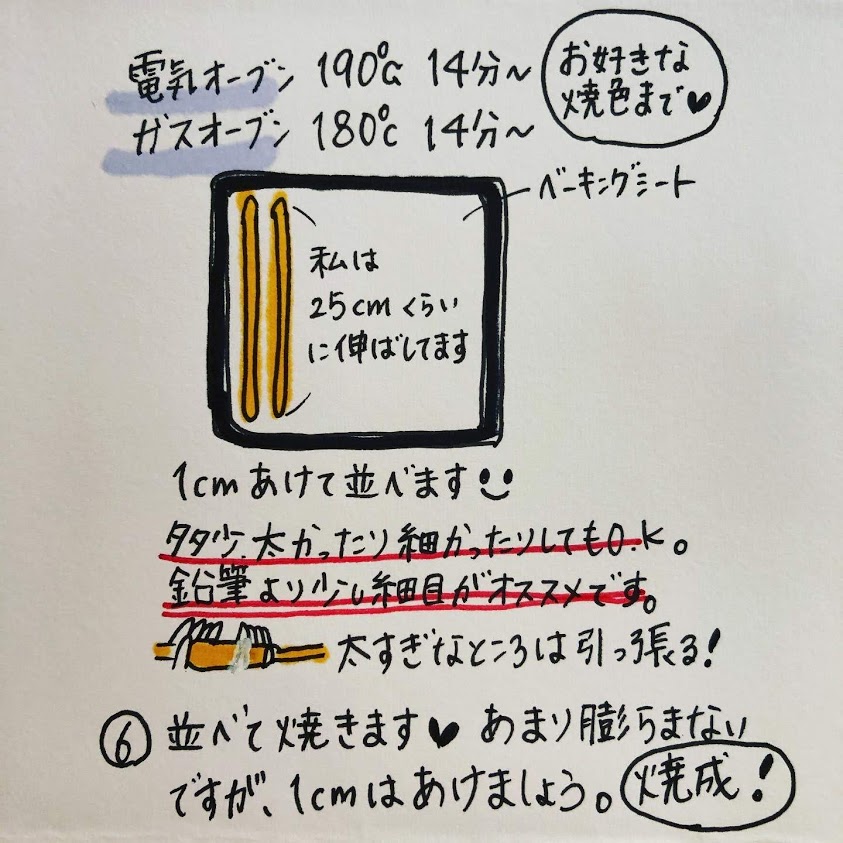 電気オーブン 190℃ 14分〜
お好きな
焼色まで♥
ガスオーブン 180℃ 14分〜
ベーキングシート
私は
25cmくらい
に伸ばしてます
1cmあけて並べます
多少.太かったり細かったりしてもO.K。
鉛筆より少し細目がオススメです。
太すぎなところは引っ張る!
⑥ 並べて焼きます♥ あまり膨らまない
ですが、1cmはあけましょう。焼成!